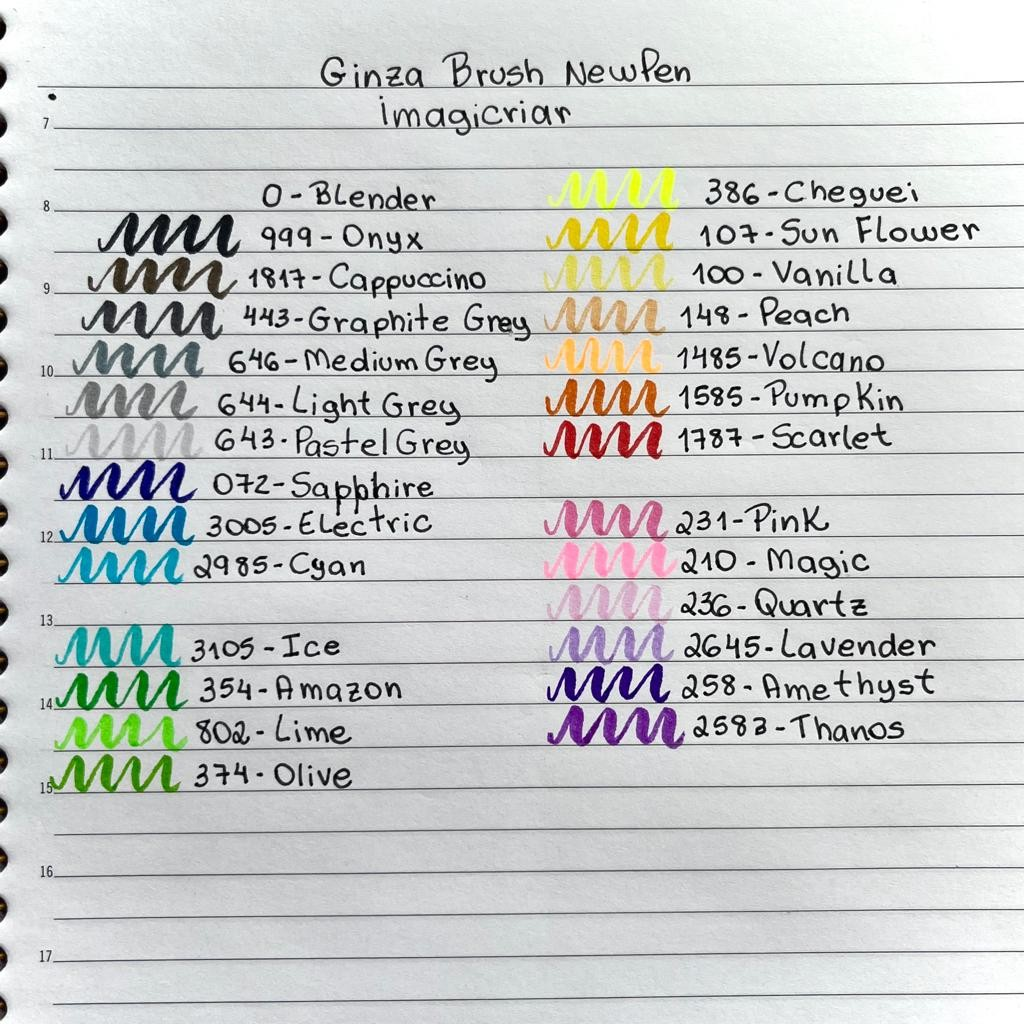 Ginza Brush NewPen
imagicriar
7
8
9
10
11
12
13
14
15
16
17
0-Blender
999-Onyx
1817-Cappuccino
443-Graphite Grey
646-Medium Grey
644-Light Grey
643-Pastel Grey
072-Sapphire
3005-Electric
2985-Cyan
3105-Ice
354-Amazon
802-Lime
374-Olive
386-Cheguei
107-Sun Flower
100-Vanilla
148-Peach
1485-Volcano
1585-Pumpkin
1787-Scarlet
231-Pink
210-Magic
236-Quartz
2645-Lavender
258-Amethyst
2583-Thanos